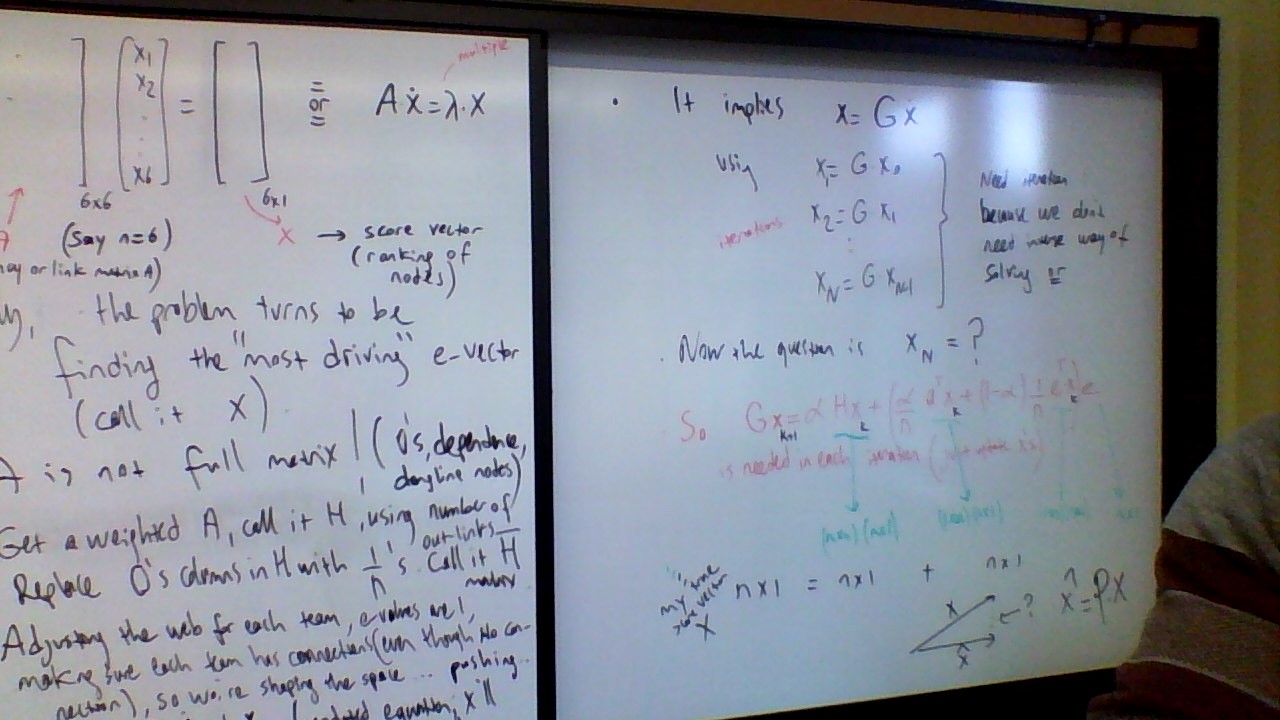 [ ] [x1 x2 . . . x6] = [ ] = or = A·x = λ·x
multiple
6x6 6x1
(Say n=6) x → score vector
(ranking of
nodes)
or link matrix A)
the problem turns to be
finding the "most driving" e-vector
(call it X)
A is not full matrix! (0's, dependence,
dangling nodes)
Get a weighted A, call it H, using number of
out-links
Replace 0's columns in H with 1/n's. Call it H
matrix
Adjusting the web for each team, e-values are 1,
making sure each team has connections (even though no con-
nection), so we're shaping the space ... pushing..
equation, x'll
• It implies x = G x
using x1 = G·x0
iterations x2 = G x1
:
xN = G xN-1
Need iteration
because we don't
need inverse way of
solving
. Now the question is xN = ?
So Gx k+1 = α Hx k + (α/n aᵀx k + (1-α) 1/n eᵀx k) e
is needed in each iteration
(nxn) (nx1)
my true
score vector
x
nx1 = nx1 + nx1
x ← ? x̂ = P·x
x̂